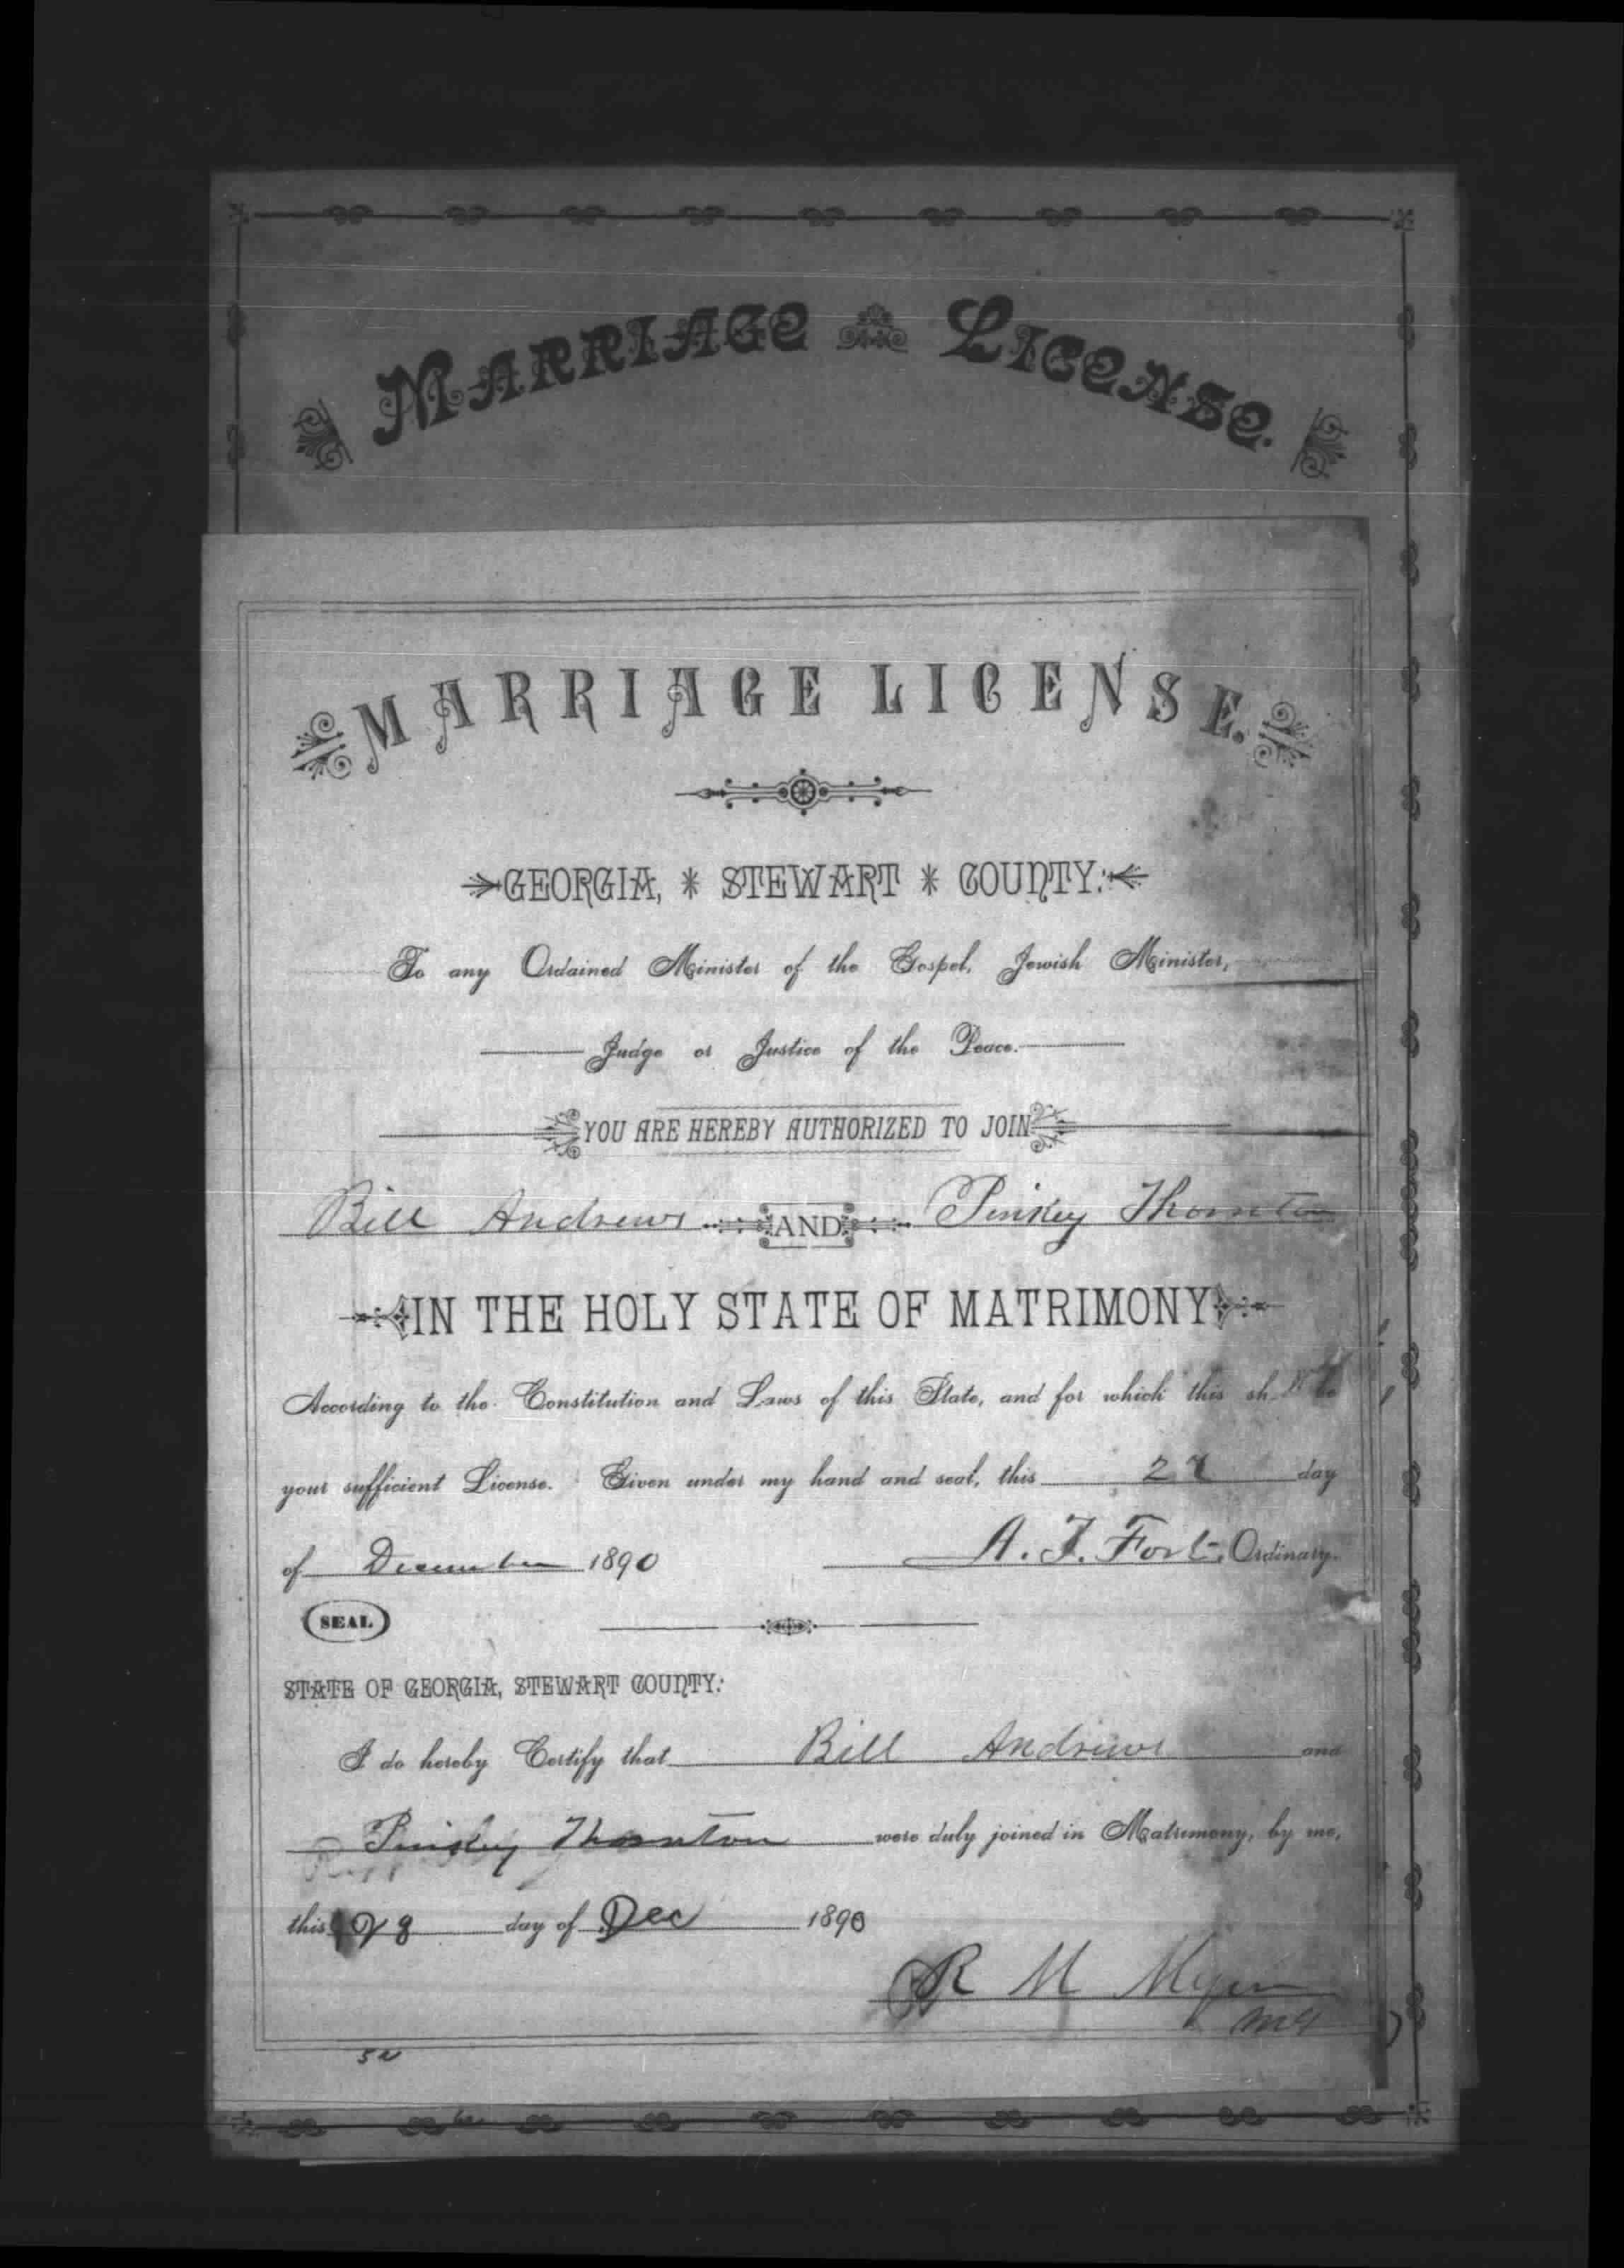 MARRIAGE LICENSE.
MARRIAGE LICENSE.
GEORGIA, * STEWART * COUNTY:
To any Ordained Minister of the Gospel, Jewish Minister,
Judge or Justice of the Peace.
YOU ARE HEREBY AUTHORIZED TO JOIN
Bill Andrews AND Pinkey Thornton
IN THE HOLY STATE OF MATRIMONY
According to the Constitution and Laws of this State, and for which this shall be
your sufficient License. Given under my hand and seal, this 27 day
of December 1890 A. T. Fort, Ordinary.
SEAL
STATE OF GEORGIA, STEWART COUNTY:
I do hereby Certify that Bill Andrews and
Pinkey Thornton were duly joined in Matrimony, by me,
this 28 day of Dec 1890
R M